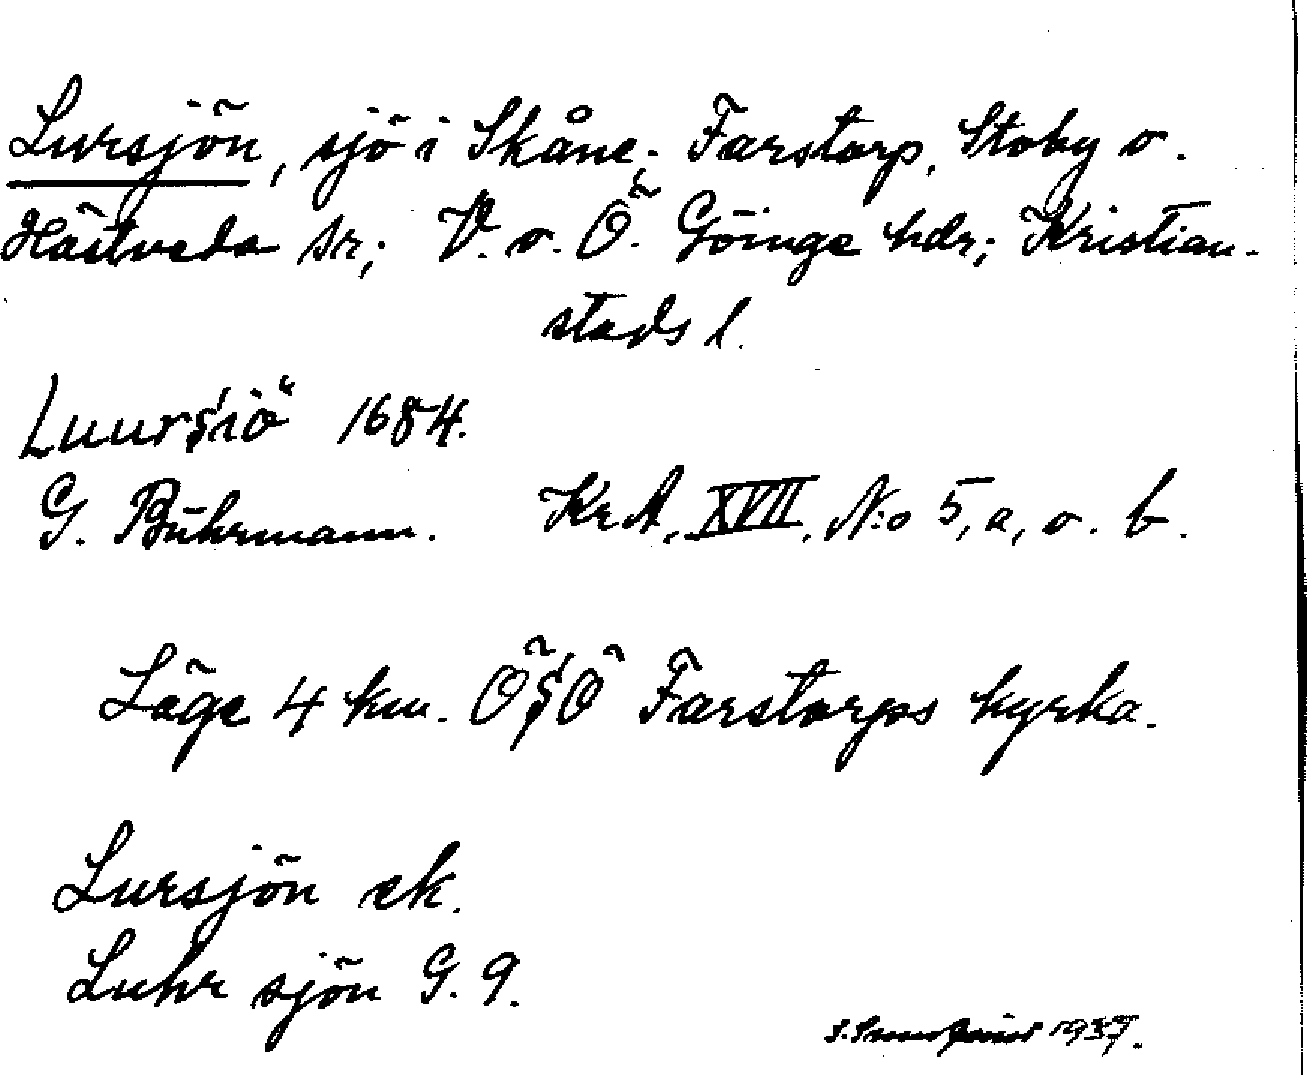 Lursjön, sjö i Skåne; Farstorp, Stoby o.
Hästveda sr; V. o. Ö. Göinge hdr; Kristian-
stads l.
Luursiö 1684.
G. Buhrmann. KrA, XVII, N:o 5, a, o. b.
Läge 4 km. ÖSÖ Farstorps kyrka.
Lursjön ek.
Luhr sjön G. 9.
1937.